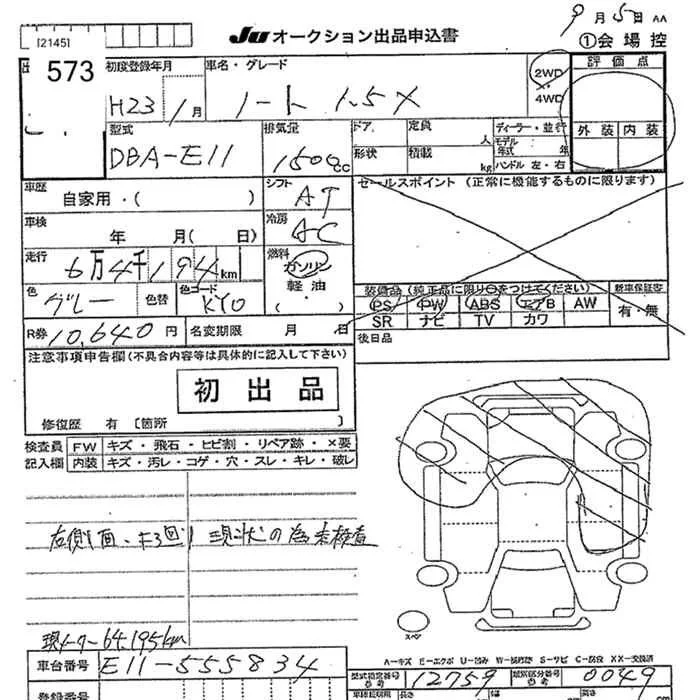 9月5日 AA
[2145]
JU オークション出品申込書
①会場控
573
初度登録年月
H23 1月
車名・グレード
ノート 1.5X
2WD
4WD
評価点
外装 内装
型式
DBA-E11
排気量
1500cc
ドア
形状
定員 人
積載 kg
ディーラー・並行
モデル年式 年
ハンドル 左・右
車歴
自家用・( )
シフト
AT
セールスポイント (正常に機能するものに限ります)
車検
年 月( 日)
冷房
AC
走行
6万4千194km
燃料
ガソリン
軽油
( )
色
グレー
色替
色コード
KY0
装備品(純正品に限り○をつけてください)
新車保証書
有・無
PS PW ABS エアB AW
SR ナビ TV カワ
R券
10,640円
名変期限 月 日
後日品
注意事項申告欄(不具合内容等は具体的に記入して下さい)
初出品
修復歴 有 〔箇所 〕
検査員記入欄
FW キズ・飛石・ヒビ割・リペア跡・×要
内装 キズ・汚レ・コゲ・穴・スレ・キレ・破レ
右側1面、 現状の為未検査
現メーター 64,195km
スペア
車台番号
E11-555834
登録番号
A-キズ E-エクボ U-凹み W-補修跡 S-サビ C-腐食 XX-交換済
型式指定番号
12759
類別区分番号
0049
長さ
幅
高さ